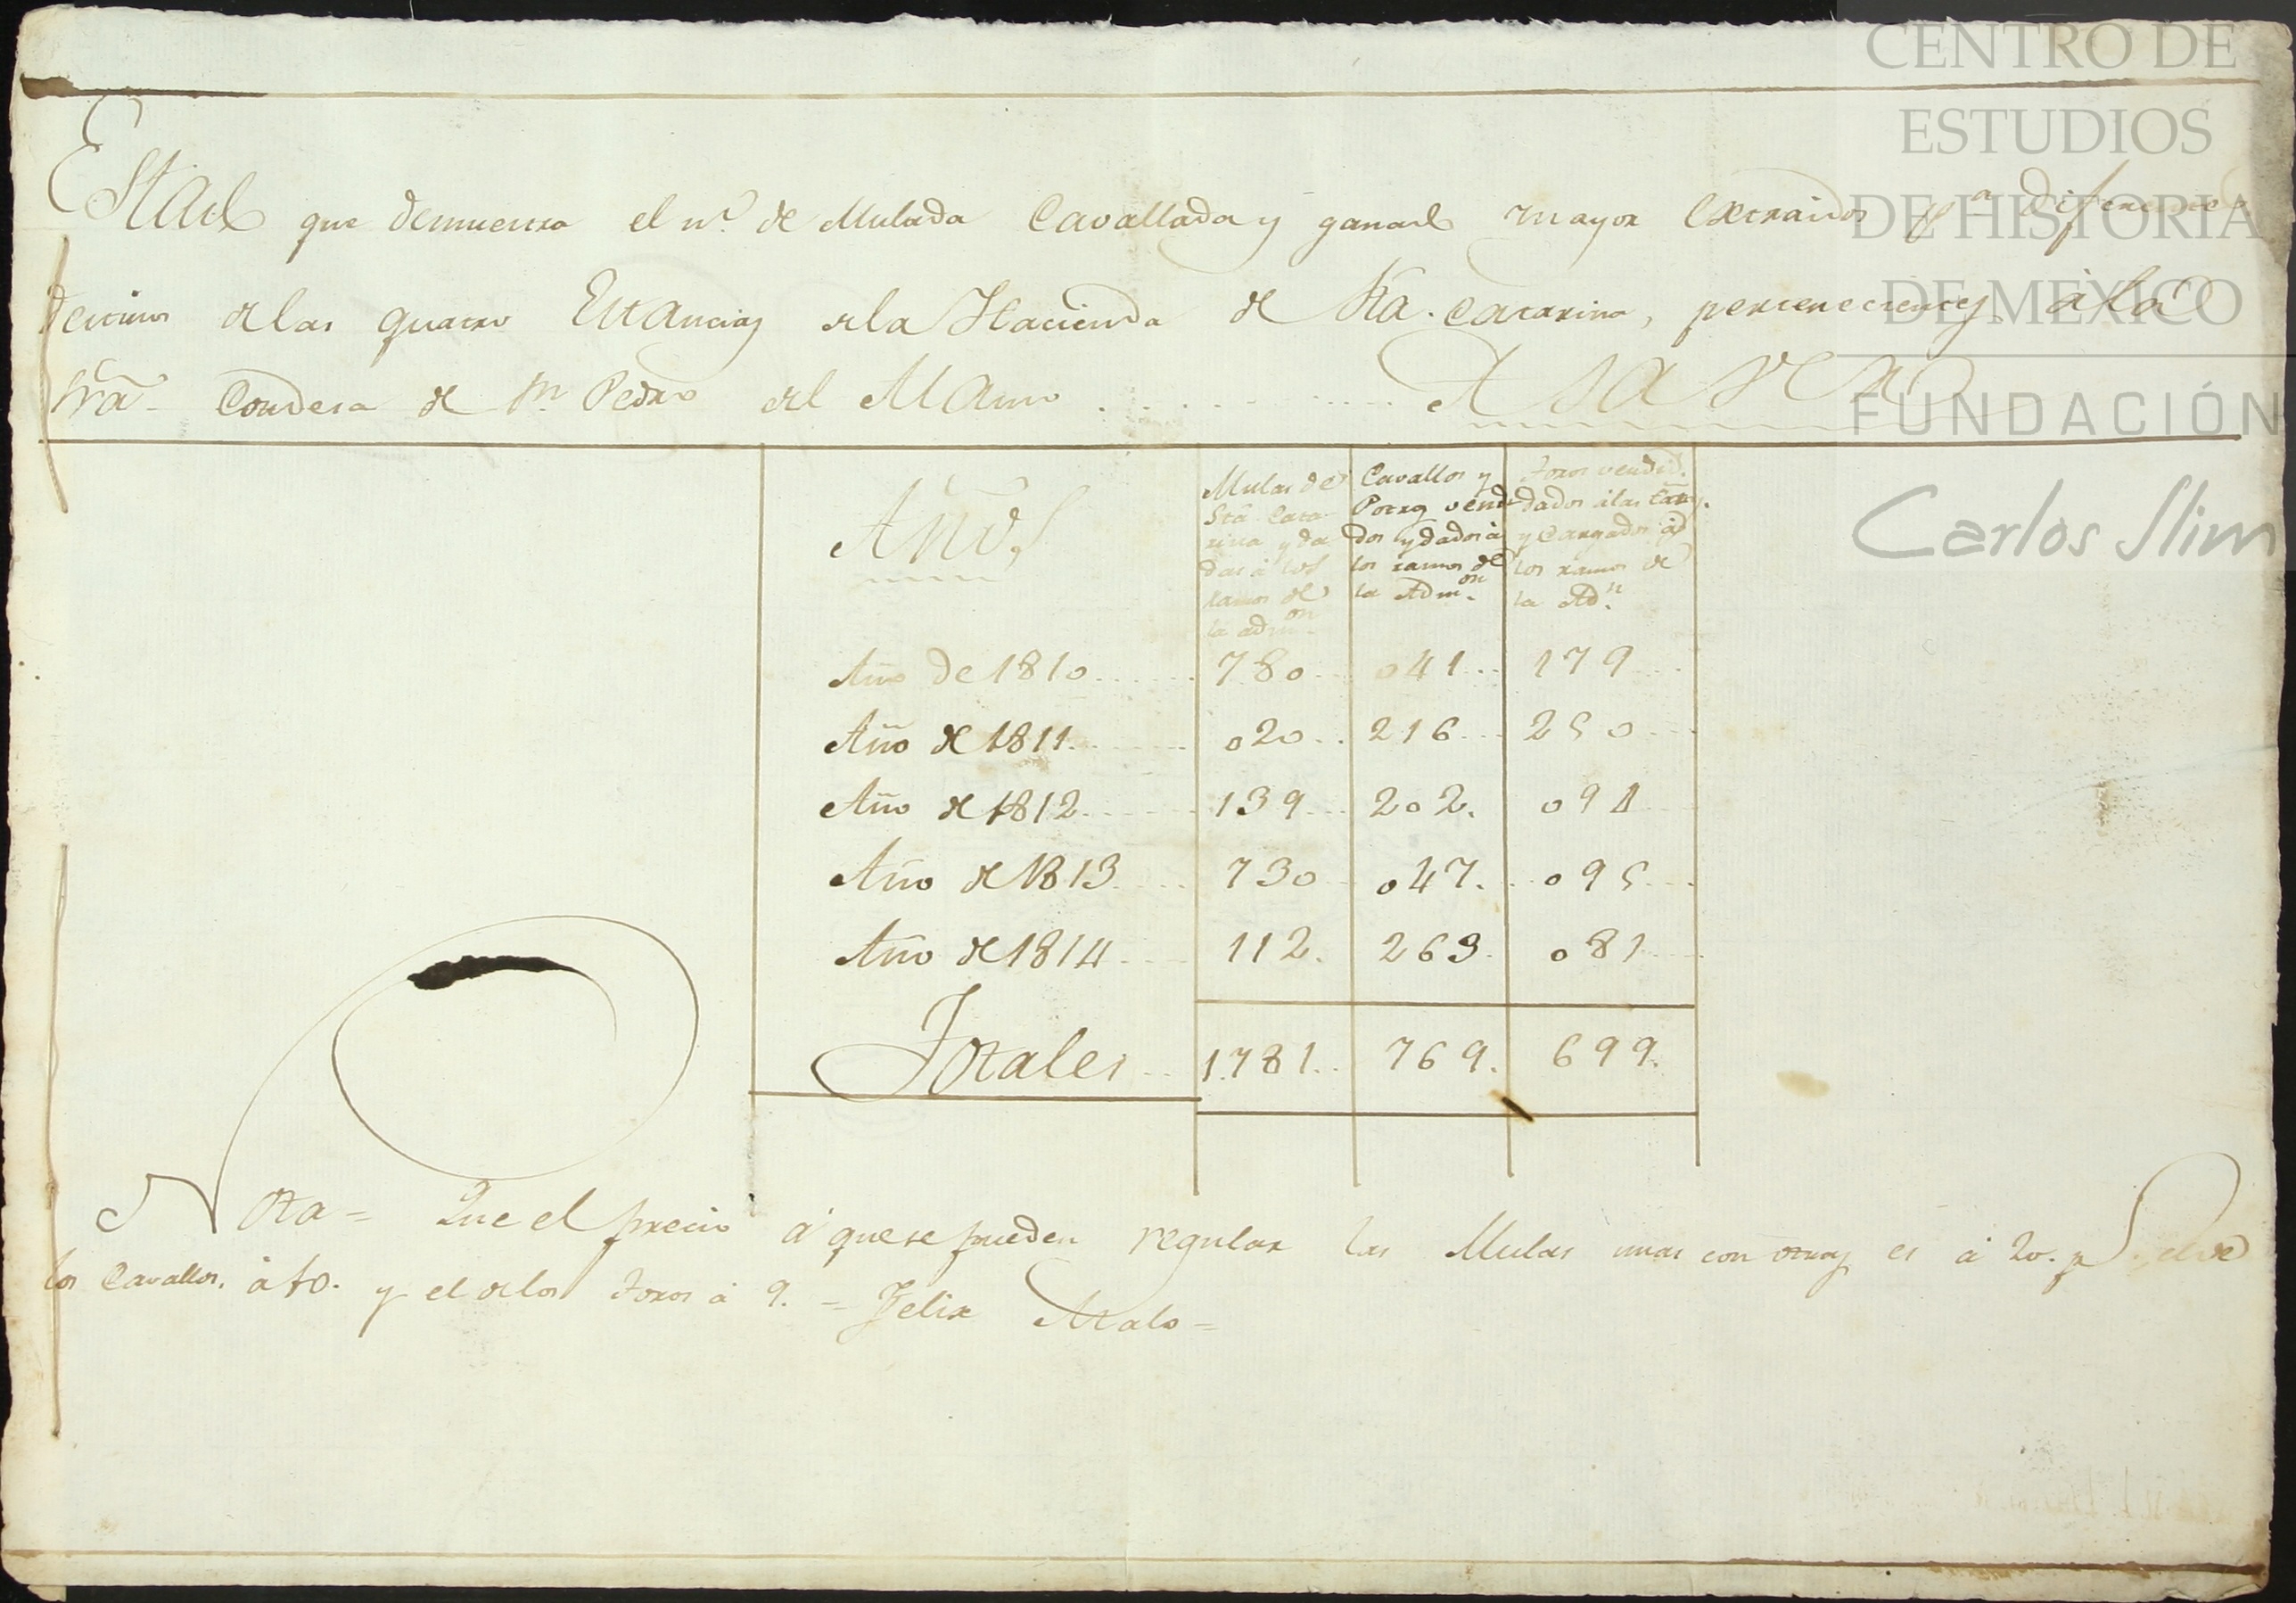 Estado que demuestra el n.º de Mulada Cavallada y ganado mayor Extraidos p.ª diferentes
destinos de las quatro Estancias de la Hacienda de Sta. Catarina, pertenecientes â la
Srâ. Condesa de Sn. Pedro del Alamo . . . . . . . . . . A SAVER
Años
Mulas de Stâ Cata-
rina y da
das â los
ramos de
la adm.on
Cavallos y
Potros vendi
dos y dados â
los ramos de
la Adm.on
Toros vendid.
dados â las
y Cargados â
los ramos de
la Ad.n
Año de 1810 ...... 780 .. 041 ... 179 ...
Año de 1811 ....... 020 .. 216 ... 250 ...
Año de 1812 ....... 139 ... 202. 094
Año de 1813 ..... 730 047. .. 095 ...
Año de 1814 ..... 112. 263. 081 ....
Totales ... 1.781 .. 769. 699.
Nota = Que el precio â que se pueden regular las Mulas unas con otras es â 20. ps. el de
los Cavallos. â 10. y el de los Toros â 9. = Felix Malo =
CENTRO DE
ESTUDIOS
DE HISTORIA
DE MÉXICO
FUNDACIÓN
Carlos Slim